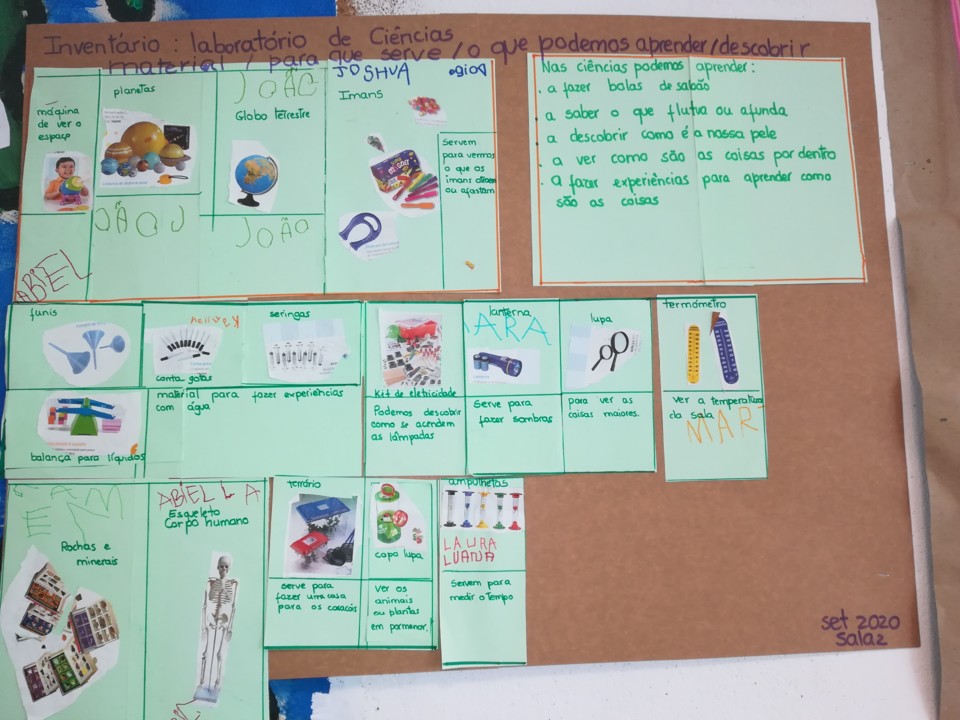 Inventário: laboratório de Ciências
material / para que serve / o que podemos aprender/descobrir
máquina
de ver o
espaço
ABIEL
planetas
JOÃO
JOÃO
Globo terrestre
JOÃO
JOSHUA
Imans
Servem
para vermos
o que os
imans
ou afastam
Nas ciências podemos aprender:
. a fazer bolas de sabão
. a saber o que flutua ou afunda
. a descobrir como é a nossa pele
. a ver como são as coisas por dentro
. a fazer experiências para aprender como
são as coisas
funis
conta gotas
seringas
balança para líquidos
material para fazer experiências
com água
Kit de eletricidade
Podemos descobrir
como se acendem
as lâmpadas
lanterna
MARA
Serve para
fazer sombras
lupa
para ver as
coisas maiores.
termómetro
ver a temperatura
da sala
MAR
Rochas e
minerais
ABIEL LA
Esqueleto
Corpo humano
terrário
serve para
fazer uma casa
para os caracóis
copo lupa
ver os
animais
ou plantas
em pormenor.
ampulhetas
LAURA
LUANA
Servem para
medir o Tempo
set 2020
sala 2